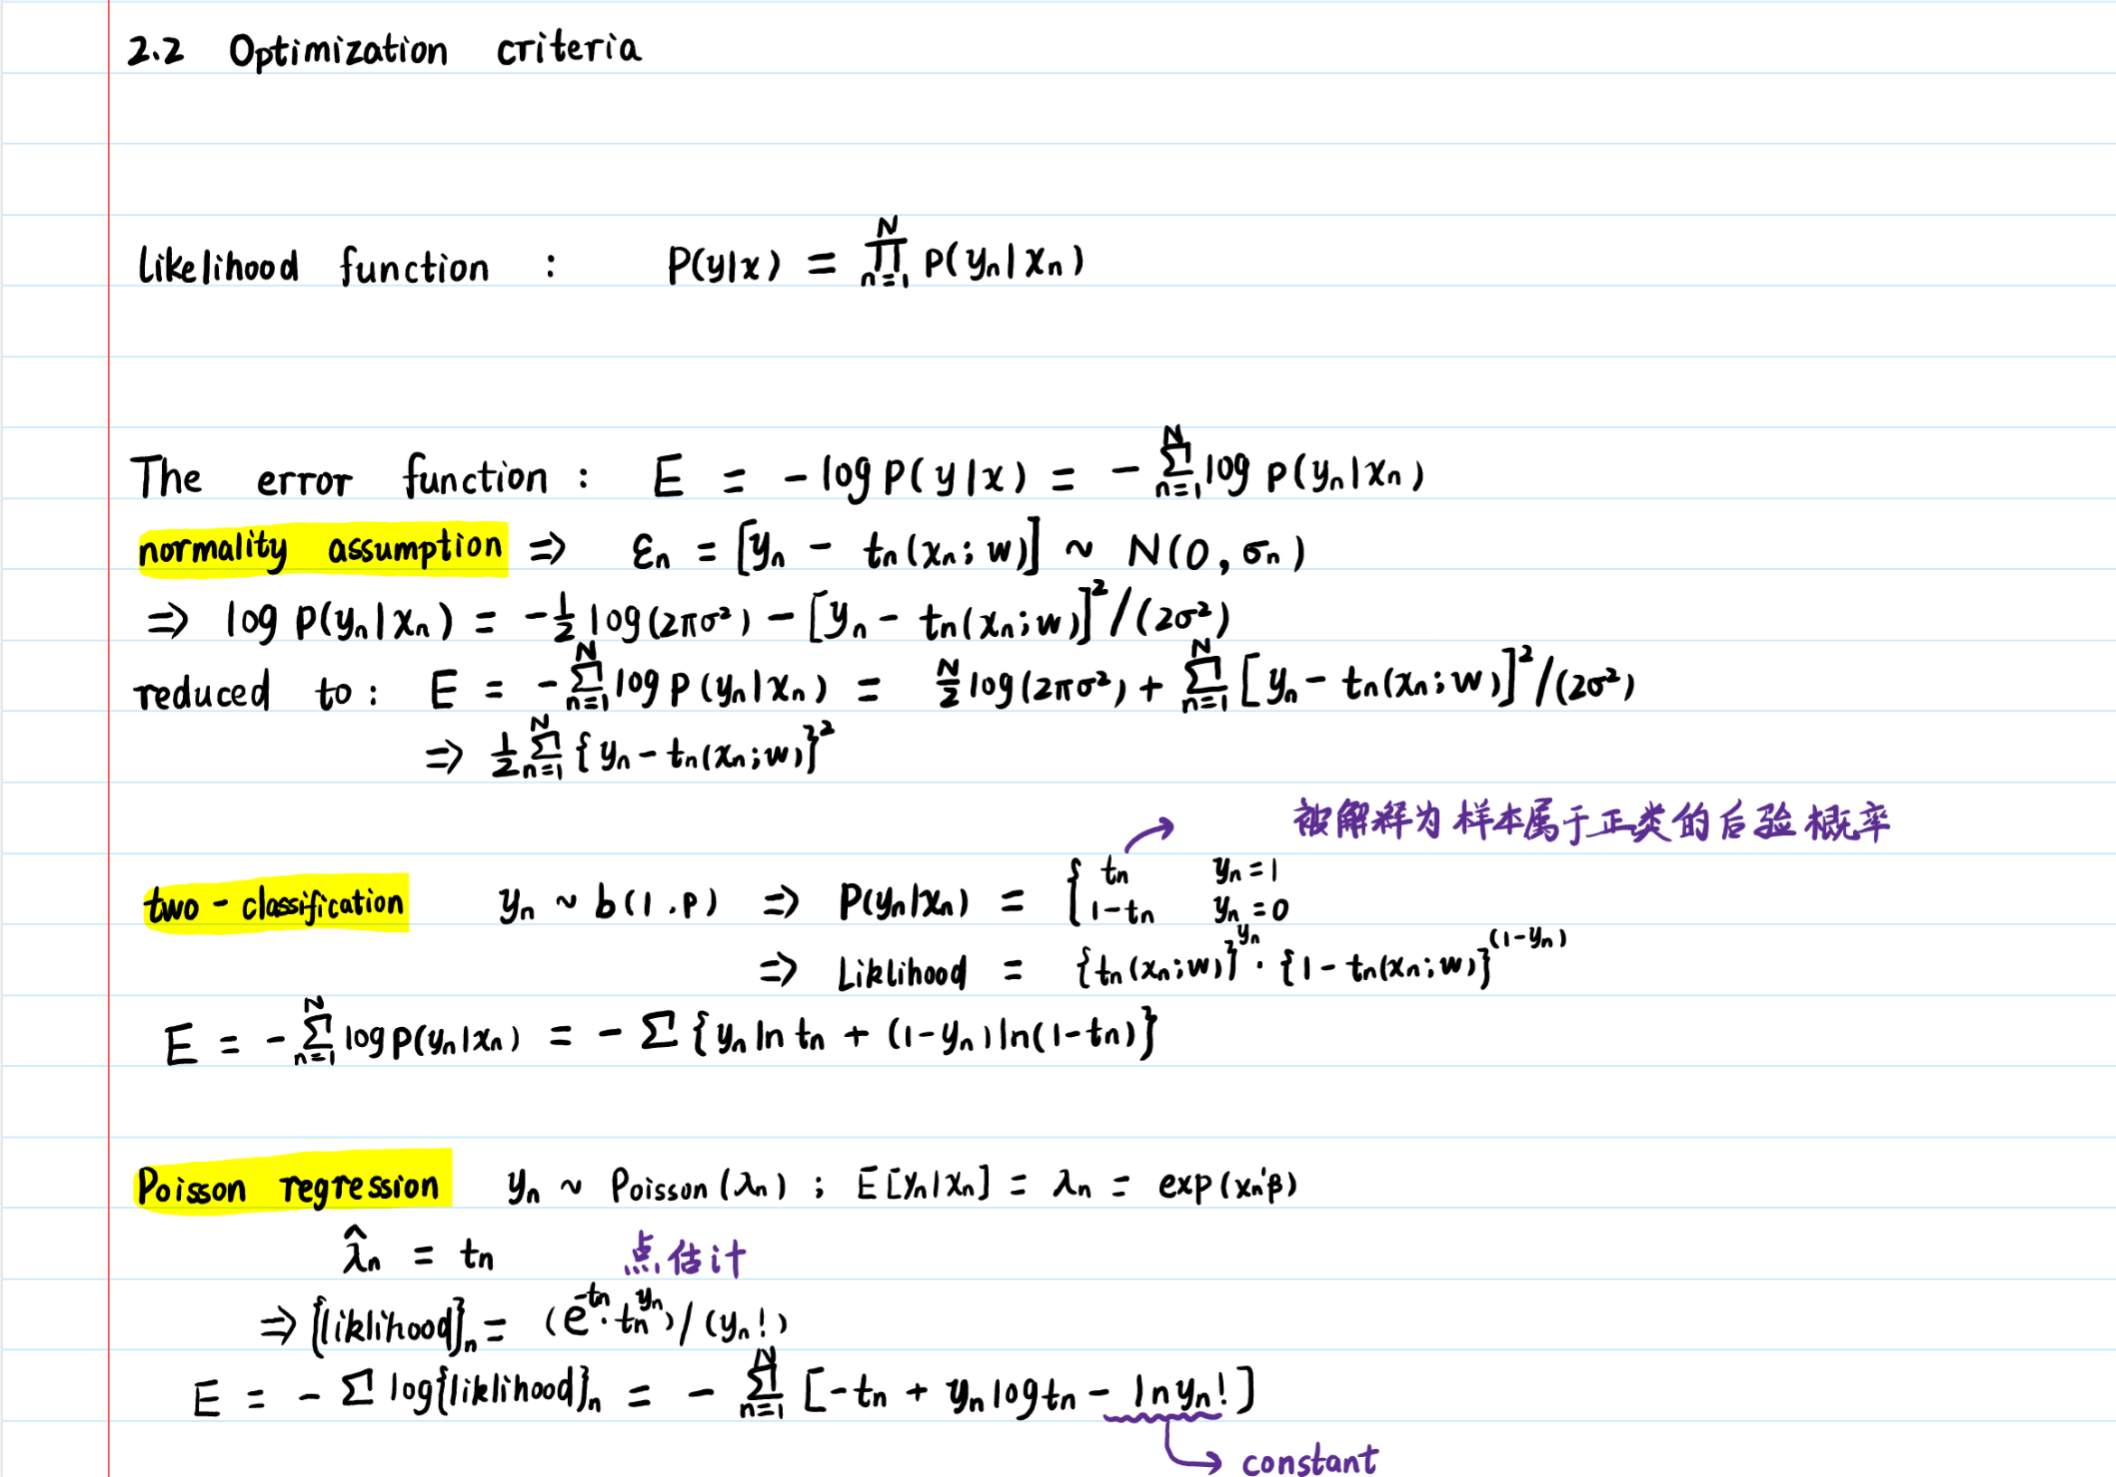 2.2 Optimization criteria
likelihood function : P(y|x) = ∏_{n=1}^{N} p(yₙ|xₙ)
The error function : E = -log P(y|x) = -∑_{n=1}^{N} log p(yₙ|xₙ)
normality assumption ⇒ εₙ = [yₙ - tₙ(xₙ;w)] ~ N(0,σₙ)
⇒ log p(yₙ|xₙ) = -½ log(2πσ²) - [yₙ - tₙ(xₙ;w)]²/(2σ²)
reduced to : E = -∑_{n=1}^{N} log p(yₙ|xₙ) = N/2 log(2πσ²) + ∑_{n=1}^{N} [yₙ - tₙ(xₙ;w)]²/(2σ²)
⇒ ½ ∑_{n=1}^{N} {yₙ - tₙ(xₙ;w)}²
被解释为样本属于正类的后验概率
two-classification yₙ ~ b(1.p) ⇒ P(yₙ|xₙ) = { tₙ yₙ=1
1-tₙ yₙ=0
⇒ Liklihood = {tₙ(xₙ;w)}^{yₙ} · {1-tₙ(xₙ;w)}^{(1-yₙ)}
E = -∑_{n=1}^{N} log p(yₙ|xₙ) = -∑ {yₙ ln tₙ + (1-yₙ)ln(1-tₙ)}
Poisson regression yₙ ~ Poisson(λₙ) ; E[yₙ|xₙ] = λₙ = exp(xₙ'β)
λ̂ₙ = tₙ 点估计
⇒ {liklihood}ₙ = (e^{-tₙ}·tₙ^{yₙ})/(yₙ!)
E = -∑ log{liklihood}ₙ = -∑_{n=1}^{N} [-tₙ + yₙ log tₙ - ln yₙ!]
constant